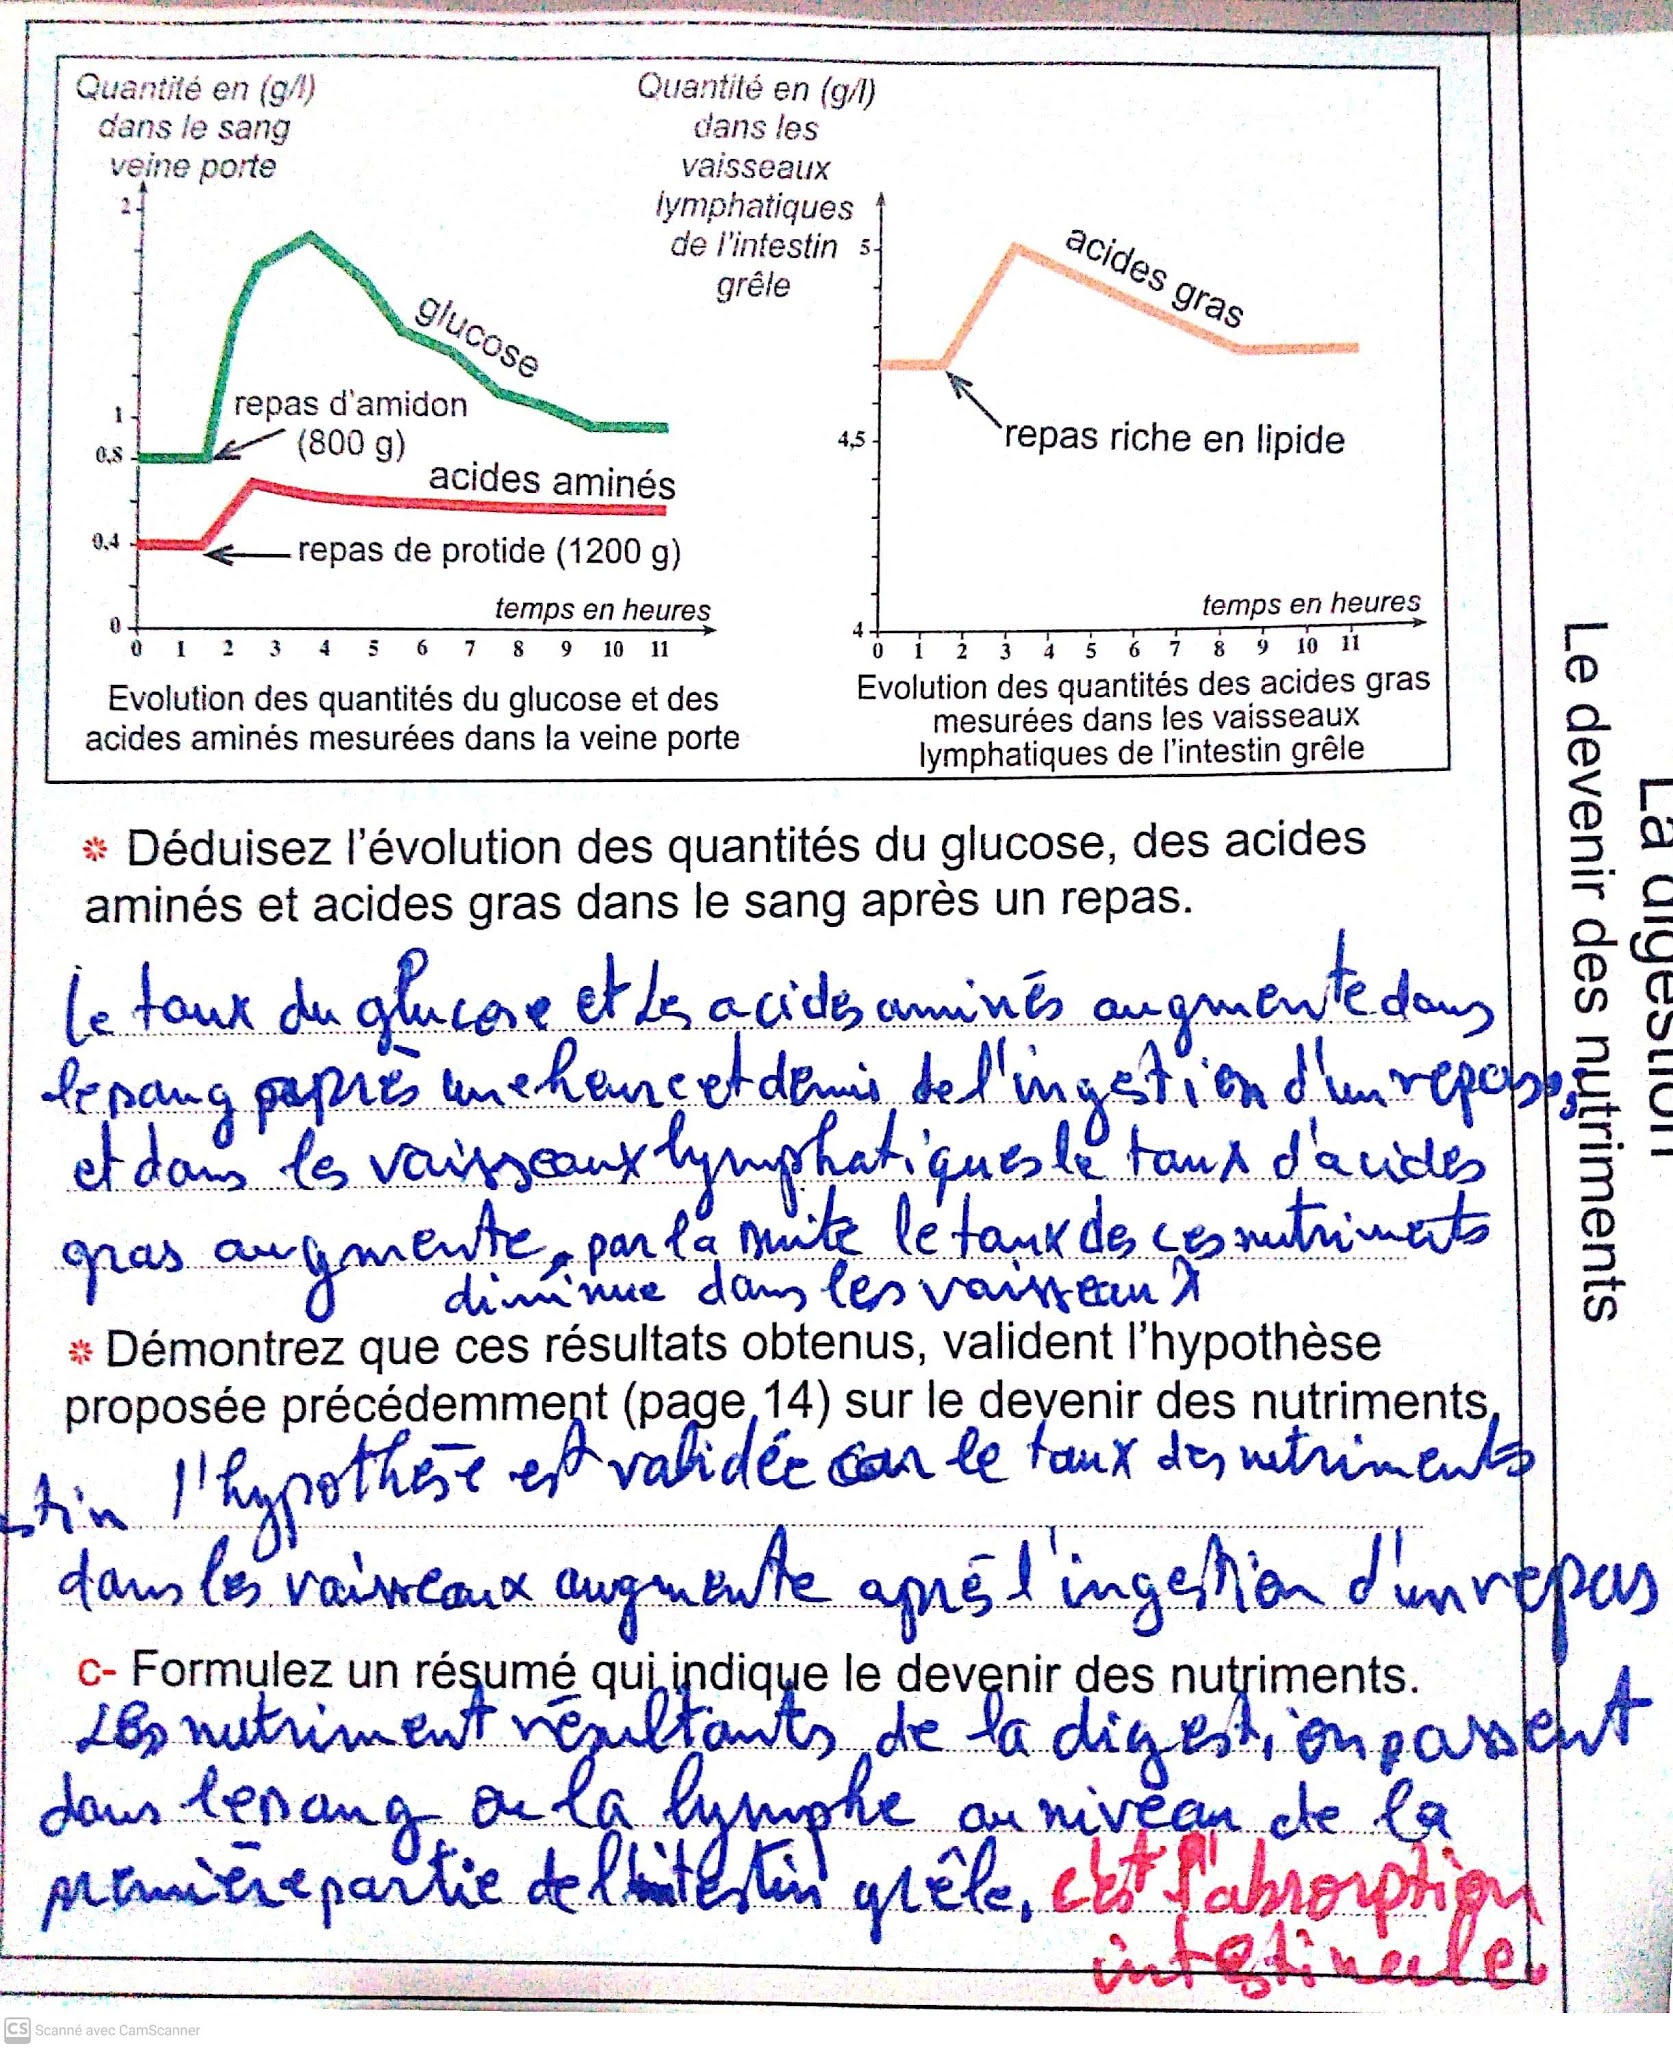 Quantité en (g/l)
dans le sang
veine porte
2
1
0,8
0,4
0
glucose
repas d'amidon
(800 g)
acides aminés
repas de protide (1200 g)
temps en heures
0 1 2 3 4 5 6 7 8 9 10 11
Evolution des quantités du glucose et des
acides aminés mesurées dans la veine porte
Quantité en (g/l)
dans les
vaisseaux
lymphatiques
de l'intestin
grêle
5
4,5
4
acides gras
repas riche en lipide
temps en heures
0 1 2 3 4 5 6 7 8 9 10 11
Evolution des quantités des acides gras
mesurées dans les vaisseaux
lymphatiques de l'intestin grêle
* Déduisez l'évolution des quantités du glucose, des acides
aminés et acides gras dans le sang après un repas.
le taux du glucose et les acides aminés augmente dans
le sang après une heure et demi de l'ingestion d'un repas,
et dans les vaisseaux lymphatiques le taux d'acides
gras augmente, par la suite le taux des ces nutriments
diminue dans les vaisseaux
* Démontrez que ces résultats obtenus, valident l'hypothèse
proposée précédemment (page 14) sur le devenir des nutriments.
l'hypothèse est validée car le taux des nutriments
stin
dans les vaisseaux augmente après l'ingestion d'un repas
c- Formulez un résumé qui indique le devenir des nutriments.
Les nutriment résultants de la digestion passent
dans le sang ou la lymphe au niveau de la
première partie de l'intestin grêle, c'est l'absorption
intestinale.
La digestion
Le devenir des nutriments
CS Scanné avec CamScanner